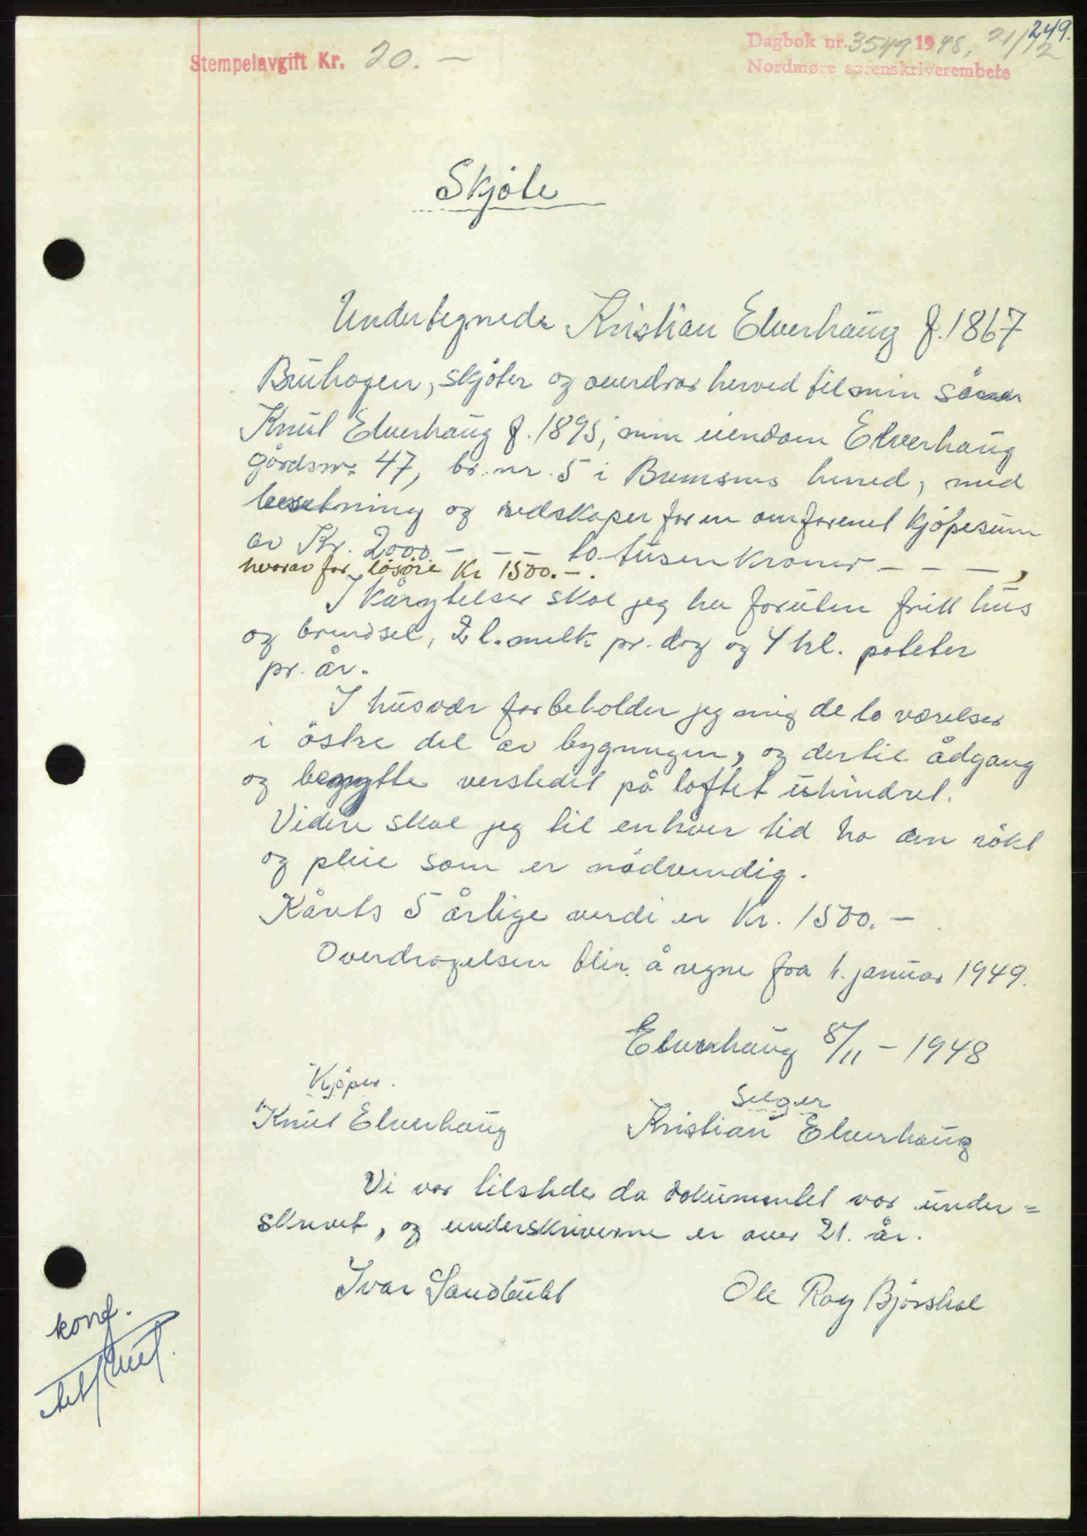 249.
Stempelavgift Kr. 20.-
Dagbok nr. 3547 1948, 21/12
Nordmøre sorenskriverembete
Skjøte
Undertegnede Kristian Elverhaug f. 1867
Bruhagen, skjøter og overdrar herved til min sönn
Knut Elverhaug f. 1895, min eiendom Elverhaug
gårdsnr 47, br. nr. 5 i Bremsnes herred, med
besetning og redskaper for en omforenet kjøpesum
av Kr. 2000 - - - to tusen kroner - - - ,
hvorav for lösöre Kr 1500.-.
I kårytelser skal jeg ha foruten fritt hus
og brendsel, 2 l. melk pr. dag og 4 hl. poteter
pr. år.
I husvær forbeholder jeg mig de to værelser
i östre del av bygningen, og dertil ådgang
og benytte verstedet på loftet uhindret.
Videre skal jeg til enhver tid ha den rökt
og pleie som er nödvendig.
Kårets 5 årlige verdi er Kr. 1500.-
Overdragelsen blir å regne fra 1. januar 1949.
Elverhaug 8/11 - 1948
Kjøper.
Selger
Knut Elverhaug
Kristian Elverhaug
Vi var tilstede da dokumentet var under=
skrevet, og underskriverne er over 21. år.
Ivar Sandbukt
Ole Roy Bjørshol
konf.